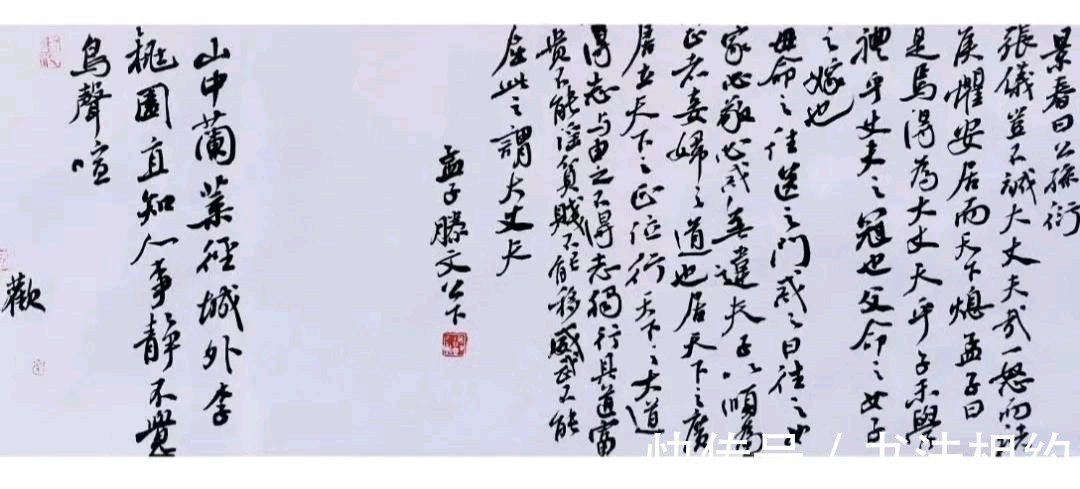 景春曰公孫衍
張儀豈不誠大丈夫哉一怒而諸
侯懼安居而天下熄孟子曰
是焉得為大丈夫乎子未學
禮乎丈夫之冠也父命之女子
之嫁也
母命之往送之門戒之曰往之女
家必敬必戒無違夫子以順為
正者妾婦之道也居天下之廣
居立天下之正位行天下之大道
得志与由之不得志獨行其道富
貴不能淫貧賤不能移威武不能
屈此之謂大丈夫
孟子滕文公下
山中蘭葉徑城外李
桃園直知人事靜不覺
鳥聲喧
歡
快传号 / 书法相约